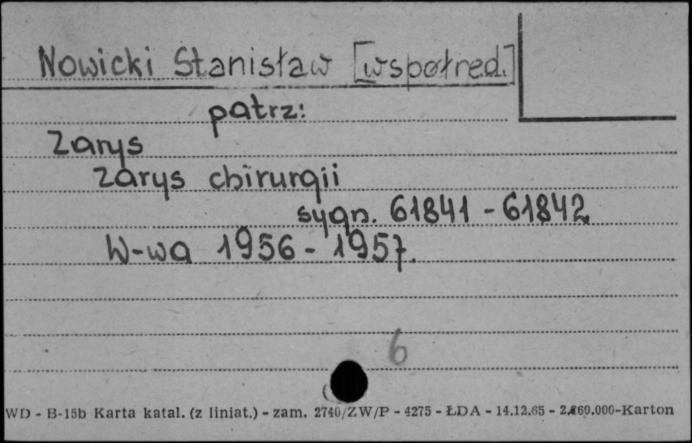 Nowicki Stanisław [współred.]
patrz:
Zarys
Zarys chirurgii
sygn. 61841 - 61842
W-wa 1956 - 1957.
6
WD - B-15b Karta katal. (z liniat.) - zam. 2740/ZW/P - 4275 - ŁDA - 14.12.65 - 2.860.000-Karton